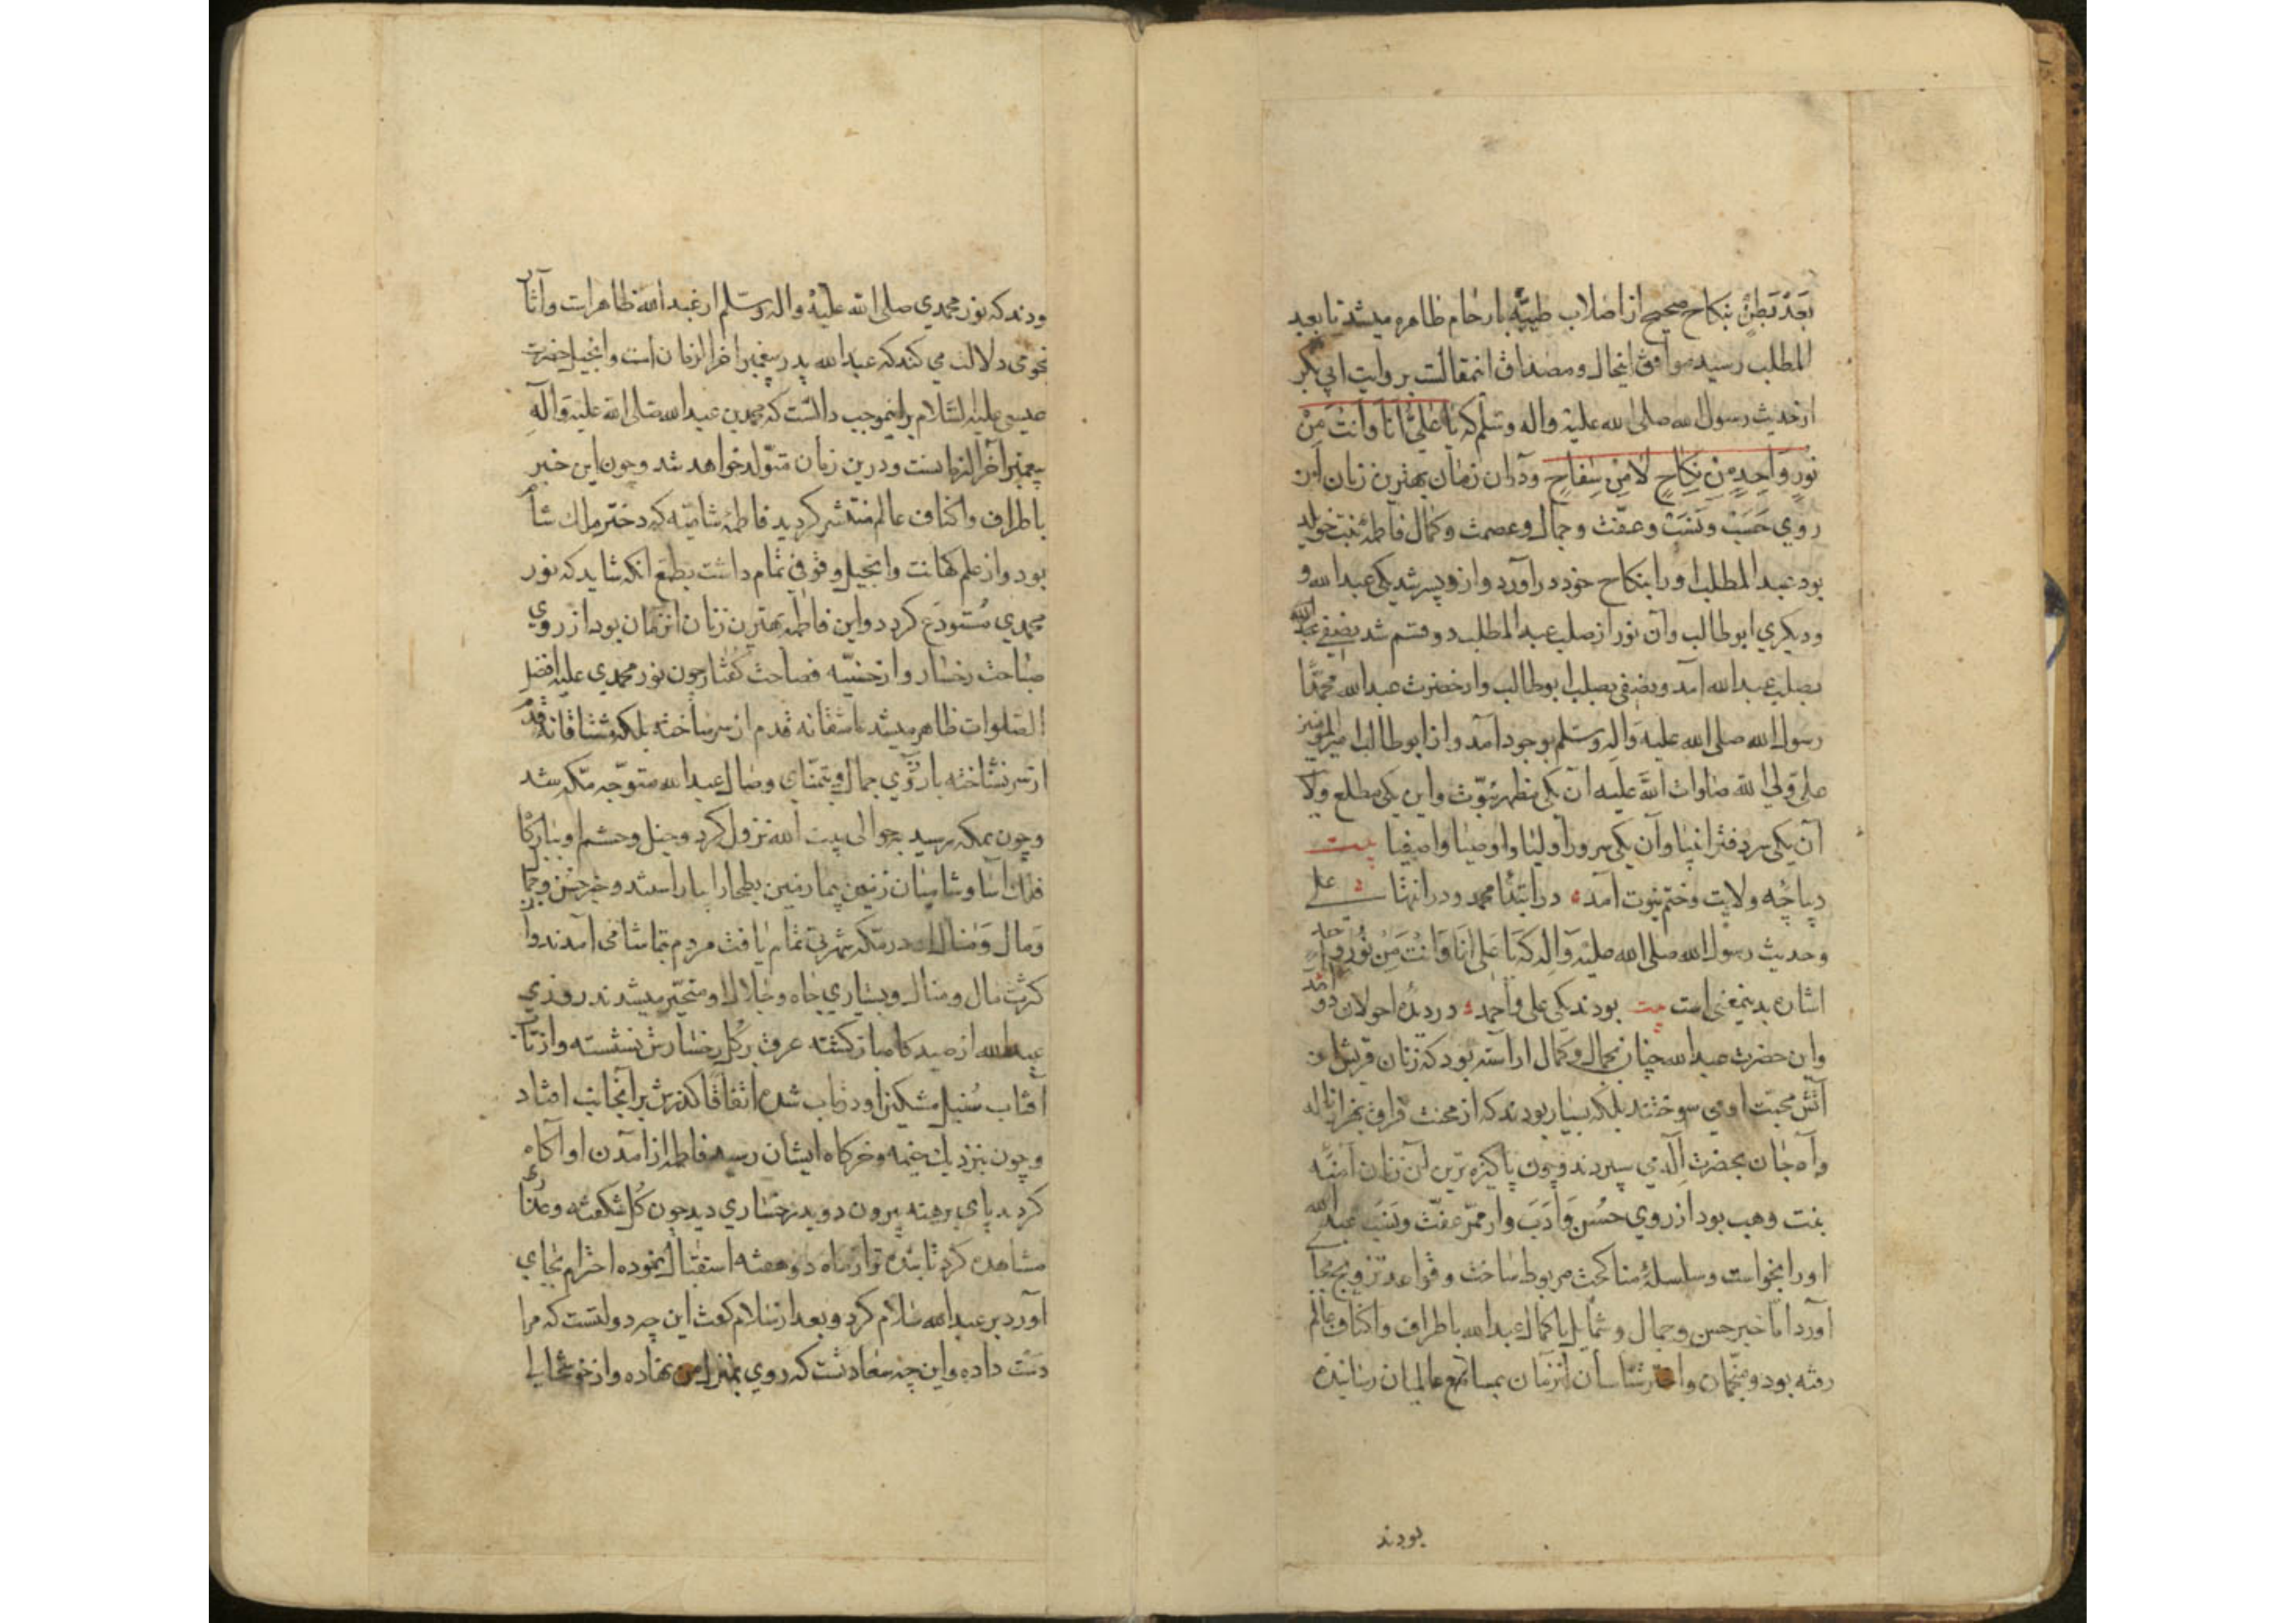 بَعْدَ بَطْنٍ بنكاح صحيح از اصلاب طيّبه بارحام طاهره ميشد تا بعبد
المطلب رسيد موافق اينحال ومصداق اينمقالست بروايت ابي بكر
از حديث رسول الله صلى الله عليه واله وسلم كه يا عَلِيُّ اَنَا وَاَنْتَ مِنْ
نُورٍ وَاحِدٍ مِنْ نِكَاحٍ لَا مِنْ سِفَاحٍ ودران زمان بهترين زنان از
روي حَسَبْ ونَسَبْ وعفّت وجمال وعصمت وكمال فاطمهٔ بنت
بود عبد المطلب اورا بنكاح خود درآورد وازو پسر شد يكي عبد الله و
وديكري ابوطالب وآن نور از صلب عبد المطلب دو قسم شد بضفى
بصلب عبد الله آمد وبضفى بصلب ابوطالب واز حضرت عبد الله محمّدًا
رسول الله صلى الله عليه وَاله وسَلم بوجود آمد واز ابوطالب امير المؤمنين
علي ولي الله صلوات الله عليه آن يكى مظهر نبوّت واين يكى مطلع ولا
آن يكى سر دفتر انبيا وآن يكى سرور اوليا واوصيا واصفيا بيت
ديباچه ولايت وختم نبوت آمد ۰ در ابتدا محمد ودر انتها على
وحديث رسول الله صلى الله عليه وَاله كه يَا عَلى اَنَا وَاَنْتَ مِنْ نُورٍ وَاحِدٍ
اشاره بدينمعنى است بيت بودند يكى على واحمد ۰ در ديدهٔ احولان دو آمد
واين حضرت عبد الله چنان بجمال وكمال اراسته بود كه زنان قريش از
آتش محبّت او مي سوختند بلكه بسيار بودند كه از محنت فراق
وآه جان بحضرت اله مي سپردند وچون پاكيزه ترين آن زنان آمنه
بنت وهب بود از روي حُسْن وَادَبَ واز ممرّ عفّت ونَسَبَ عبد الله
اورا بخواست وسلسلهٔ مناكحت مربوط ساخت وقواعد تزويج بجا
آورد امّا خبر حسن وجمال وشمايل باكمال عبد الله باطراف واكناف عالم
رفته بود ومنجّمان واختر شناسان آنزمان بمسامع عالميان رسانيده
بودند
ودند كه نور محمدي صلى الله عليه واله وسلم از عبد الله ظاهر است وآثار
نجومى دلالت مي كند كه عبد الله پدر پيغمبر آخر الزمان است وانجيل حضرت
عيسى عليه السّلام برينموجب دالست كه محمد بن عبد الله صلى الله عليه وَآله
پيغمبر آخر الزمانست ودرين زمان متولّد خواهد شد وچون اين خبر
باطراف واكناف عالم منتشر كرديد فاطمهٔ شاميّه كه دختر ملك شام
بود واز علم كهانت وانجيل وقوفي تمام داشت بطمع انكه شايد كه نور
محمدي مُستودَع كردد واين فاطمه بهترين زنان انزمان بود از روي
صباحت رخسار واز فصاحت كفتار چون نور محمدي عليه افضل
الصلوات ظاهر ميشد عاشقانه قدم از سر ساخته بلكه مشتاقانه قدم
از سر نشناخته بارزوي جمال وبتمنّاي وصال عبد الله متوجّه مكّه شد
وچون بمكه رسيد بحوالى بيت الله نزول كرد وخيل وحشم او
فلك آسا وشاميان زمين پيما زمين بطحا را بياراستند وخبر حسن وجمال
وَمال وَمنال در مكه شهرتى تمام يافت مردم بتماشا مى آمدند واز
كثرت مال ومنال وبسياري جاه وجلال او متحيّر ميشدند روزي
عبد الله از صيدكاه بازكشته عرق بركل رخسارش نشسته واز تاب
آفتاب سُنبل مشكين او در تاب شده اتفاقًا كذرش برانجانب افتاد
وچون بنزديك خيمه وخركاه ايشان رسيد فاطمه از آمدن او آكاه
كرديد پاي برهنه بيرون دويد رخساري ديد چون كُل شكفته وعُذاري
مشاهده كرد تابنده تر از ماه دو هفته استقبال نموده احترام بجاي
آورد بر عبد الله سلام كرد وبعد از سلام كفت اين چه دولتست كه مرا
دست داده واين چه سعادتست كه روي بمنزل من نهاده واز